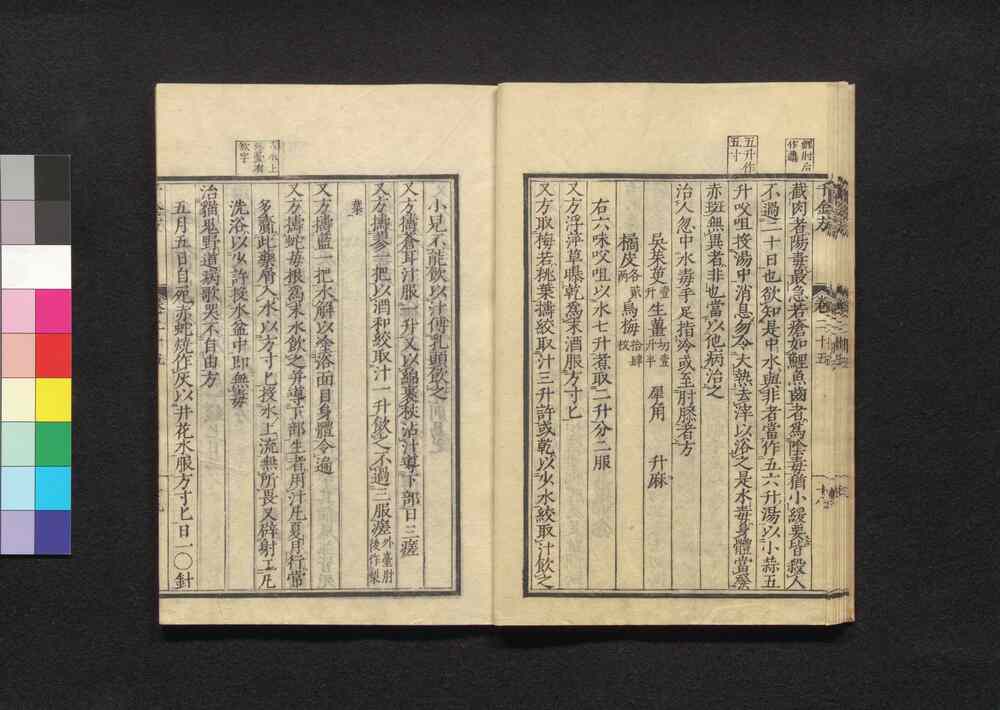 鯉肘后
作鼉
五升作
五寸
千金方 卷二十五
截肉者陽毒最急若瘡如鯉魚齒者為陰毒猶小緩要皆殺人
不過二十日也欲知是中水與非者當作五六升湯以小蒜五
升㕮咀投湯中消息勿令大熱去滓以浴之是水毒身體當發
赤斑無異者非也當以他病治之
治人忽中水毒手足指冷或至肘膝者方
吳茱萸壹升 生薑切壹升半 犀角 升麻
橘皮各貳兩 烏梅拾肆枚
右六味㕮咀以水七升煮取二升分二服
又方浮淬草曝乾為末酒服方寸匕
又方取梅若桃葉擣絞取汁三升許或乾以少水絞取汁飲之
小兒不能飲以汁傅乳頭飲之
又方擣蒼耳汁服一升又以綿裹秩沾汁導下部日三瘥
又方擣蓼一把以酒和絞取汁一升飲之不過三服瘥外臺肘後作梨
葉
又方擣藍一把水解以塗浴面目身體令遍
又方擣蛇莓根為末水飲之并導下部生者用汁凡夏月行常
多齎此藥屑入水以方寸匕投水上流無所畏又辟射工凡
洗浴以少許投水盆中即無毒
治猫鬼野道病歌哭不自由方
五月五日自死赤蛇燒作灰以井花水服方寸匕日一〇針